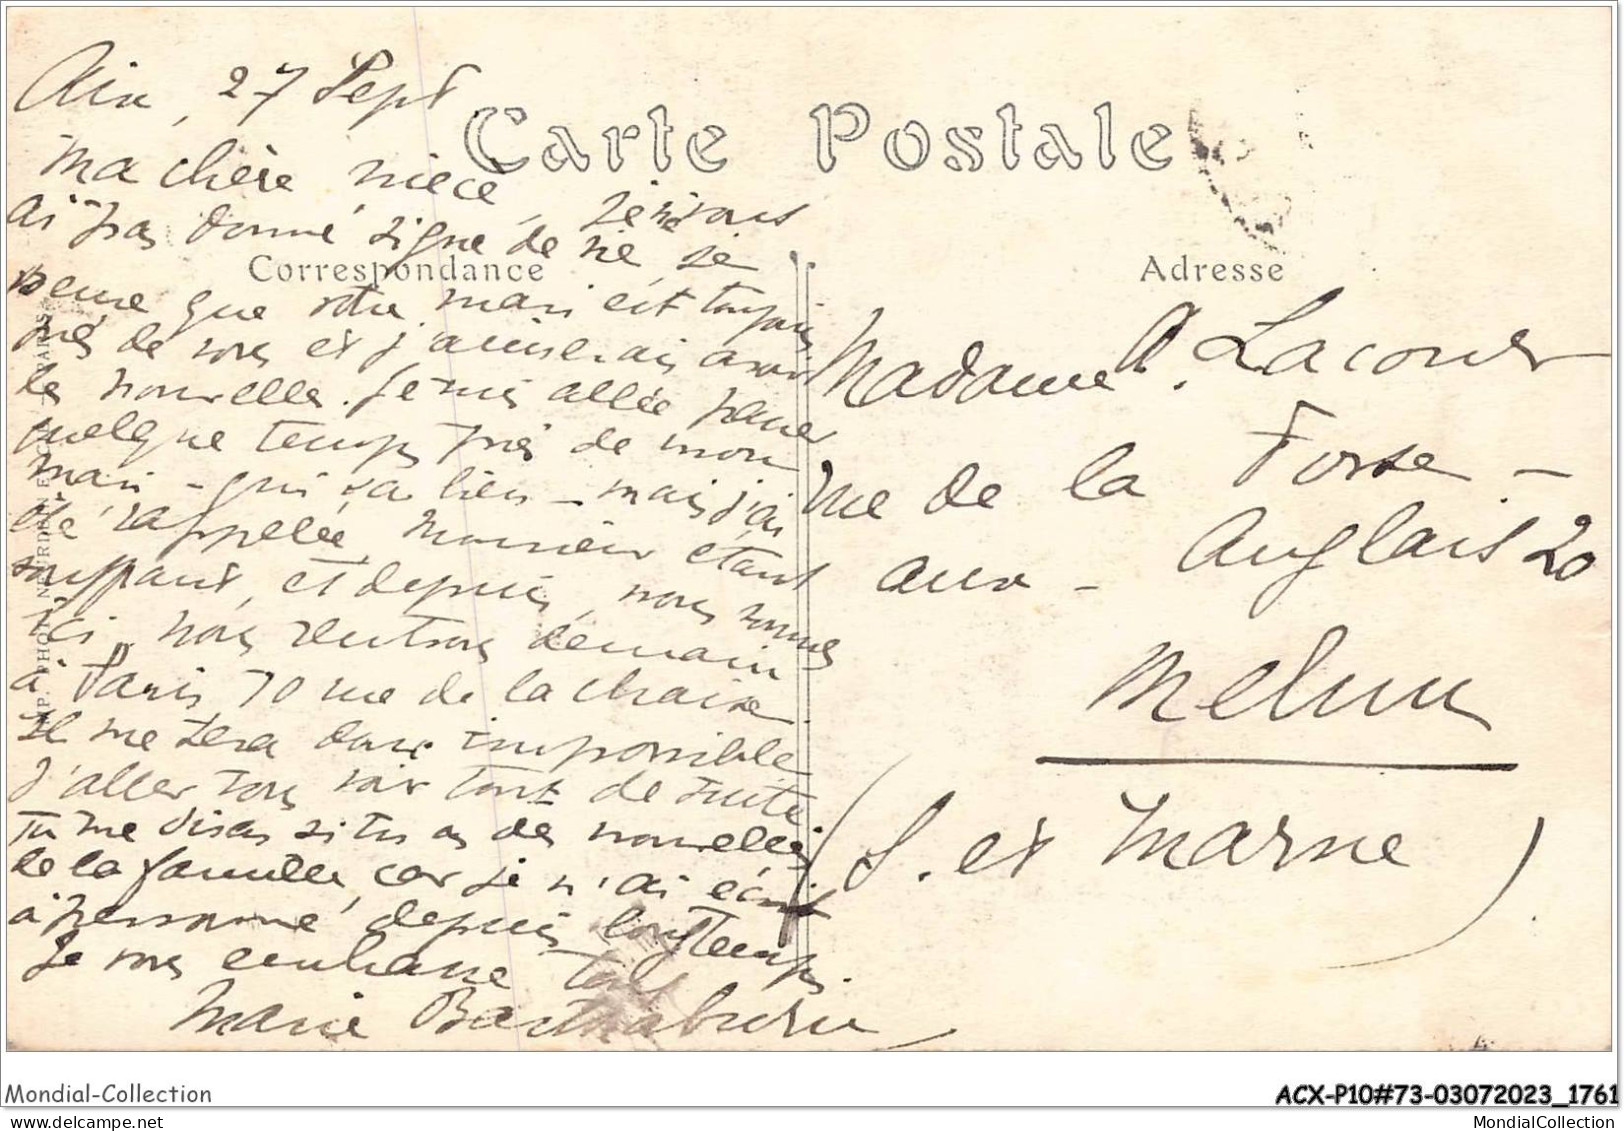 Aix, 27 Sept
Carte Postale
Ma chère nièce, Je ne vous
ai pas donné signe de vie, je
Correspondance
pense que votre mari est toujours
près de vous et j'aimerais avoir
de nouvelles. Je suis allée passer
quelque temps près de mon
mari - qui va bien - mais j'ai
été rappelée, Monsieur étant
souffrant, et depuis, nous sommes
ici. Nous rentrons demain
à Paris 70 rue de la chaise
Il me sera donc impossible
d'aller vous voir tout de suite
Tu me diras si tu as des nouvelles
de la famille, car je n'ai écrit
à personne, depuis longtemps.
Je vous embrasse tous
Marie
Adresse
Madame A. Lacour
rue de la Fosse -
aux - Anglais 20
Melun
(S. et Marne)
Mondial-Collection
ACX-P10#73-03072023_1761
Mondial-Collection
MondialCollection